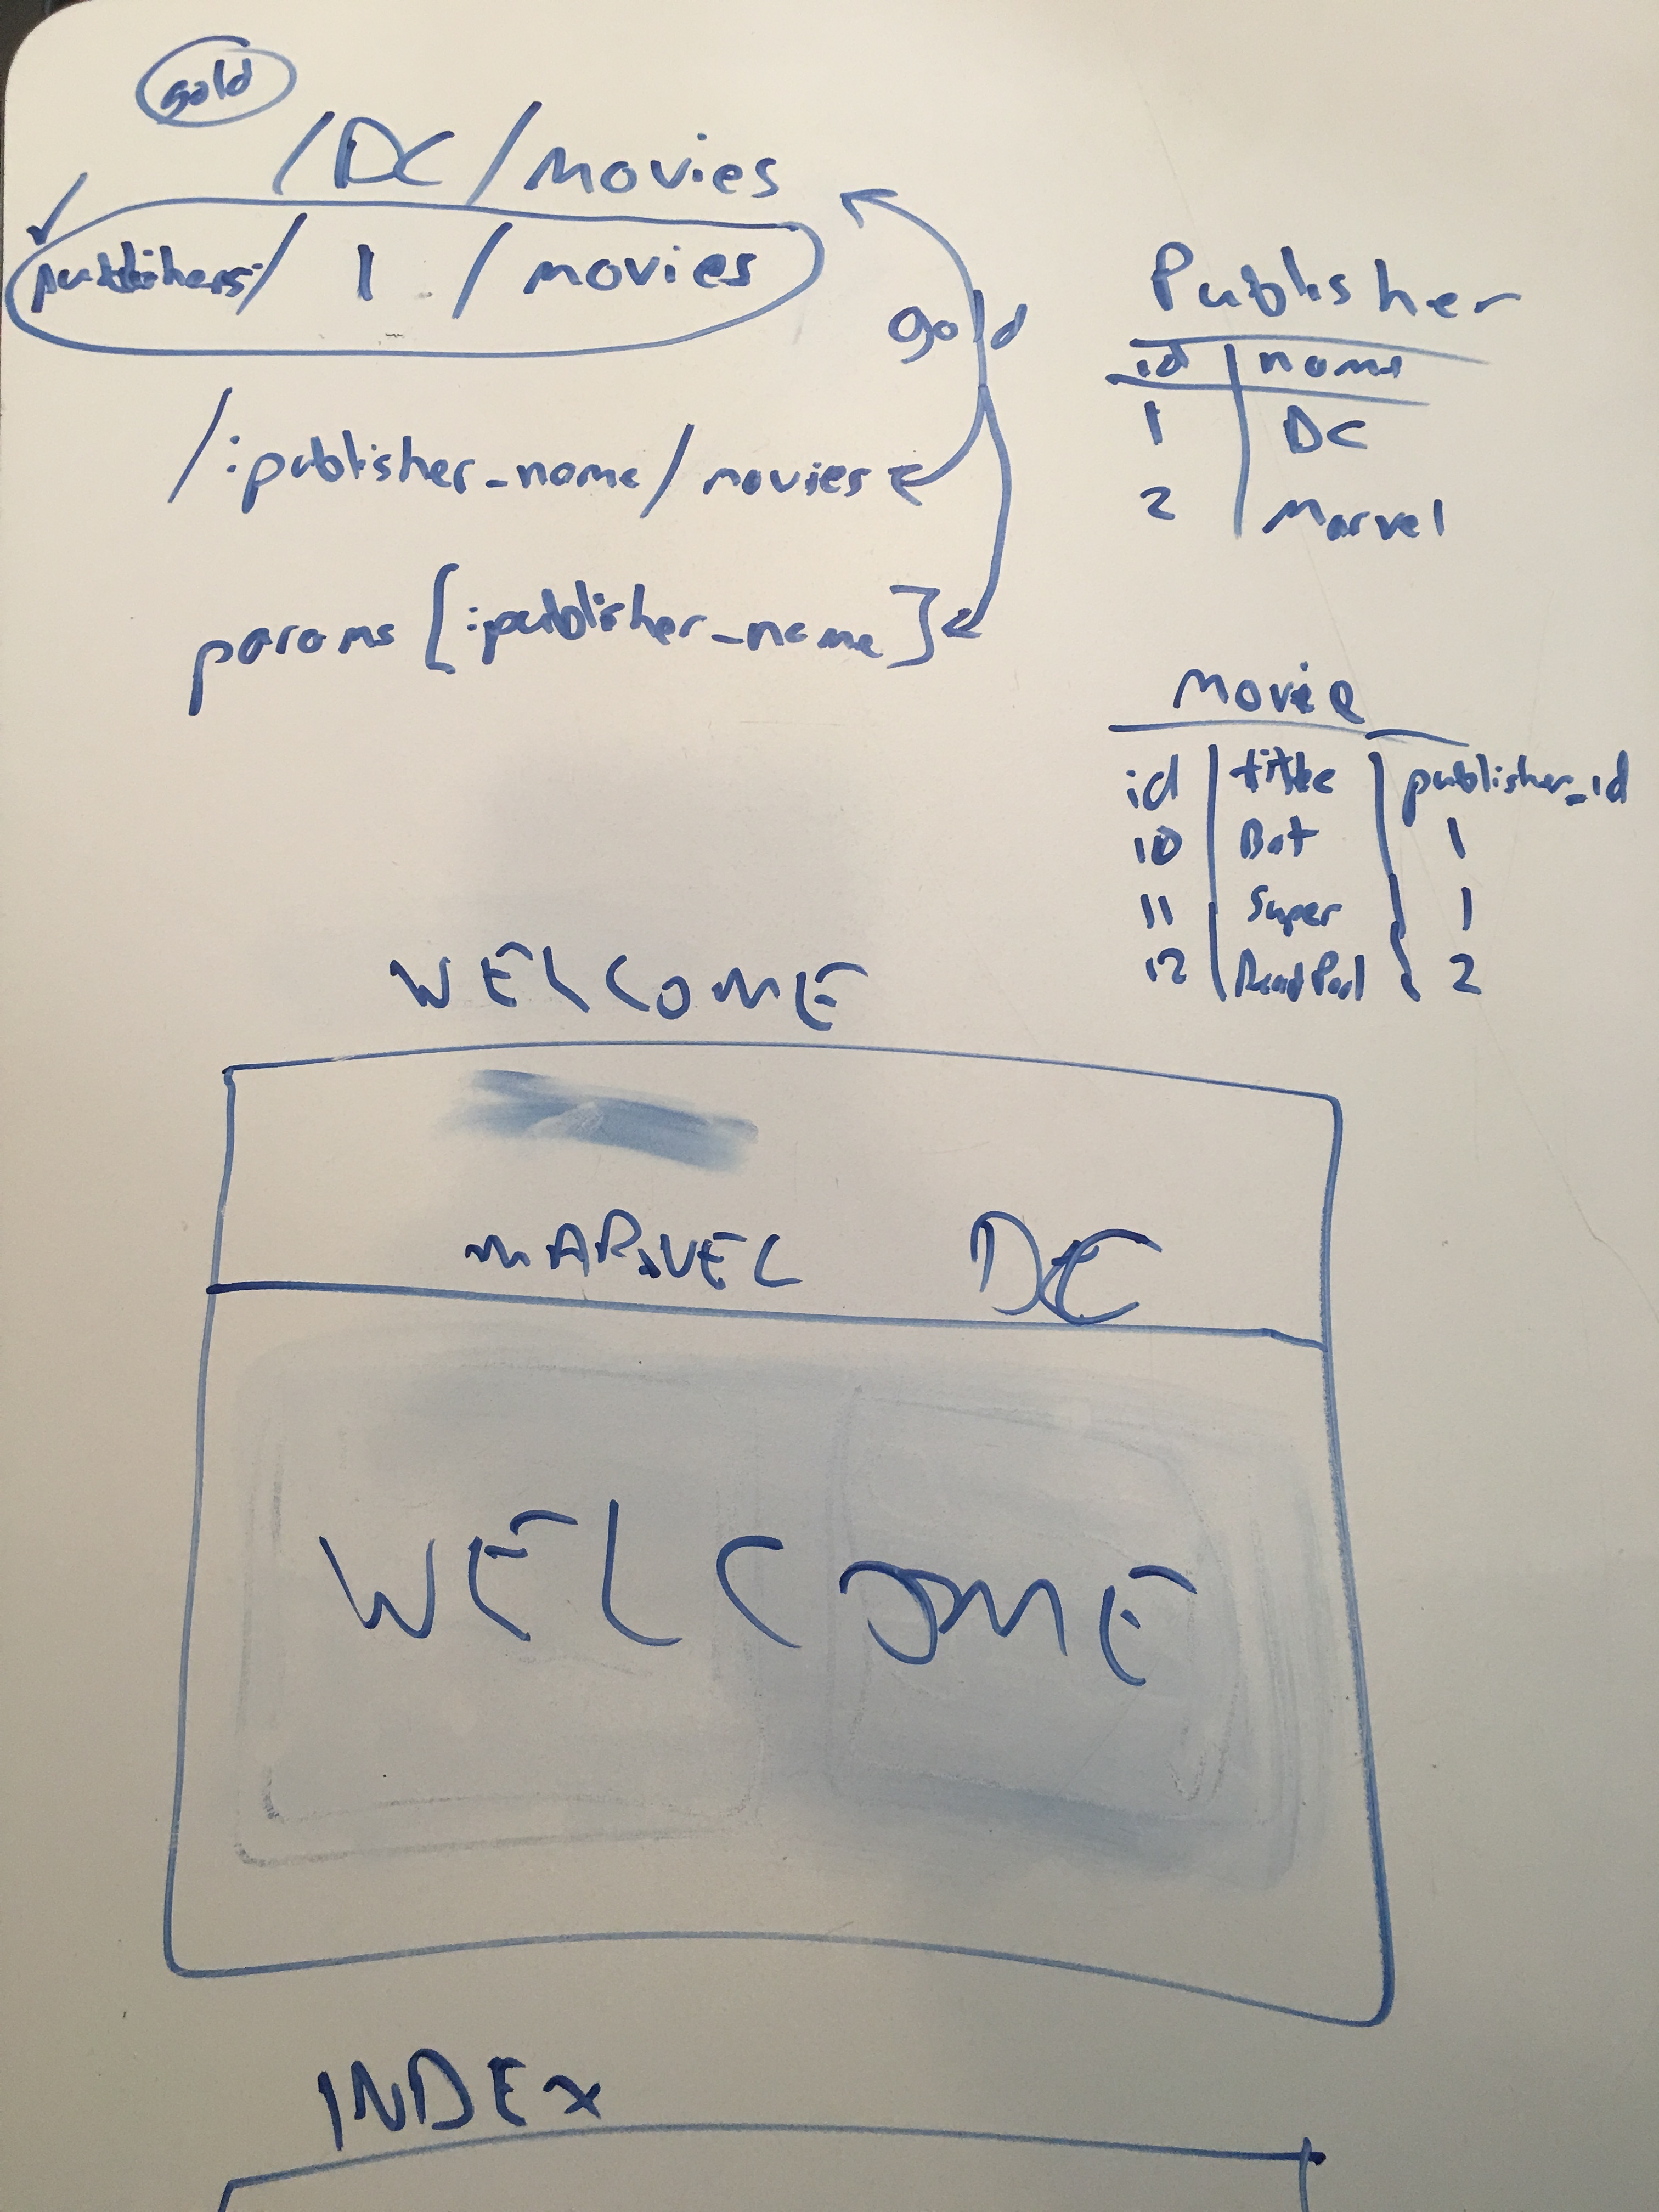 gold
/DC/movies
publishers/ 1 / movies
gold
/:publisher_name/movies
params [:publisher_name]
Publisher
id name
1 DC
2 Marvel
Movie
id title publisher_id
10 Bat 1
11 Super 1
12 DeadPool 2
WELCOME
MARVEL DC
WELCOME
INDEX